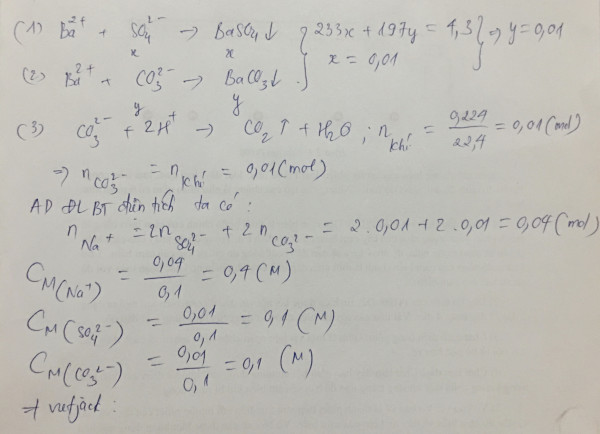 (1) Ba²⁺ + SO₄²⁻ → BaSO₄↓ } 233x + 197y = 4,3 } ⇒ y = 0,01
x x x = 0,01
(2) Ba²⁺ + CO₃²⁻ → BaCO₃↓
y y
(3) CO₃²⁻ + 2H⁺ → CO₂↑ + H₂O ; n khí = 0,224/22,4 = 0,01 (mol)
⇒ n CO₃²⁻ = n khí = 0,01 (mol)
AD ĐLBT điện tích ta có :
n Na⁺ = 2n SO₄²⁻ + 2 n CO₃²⁻ = 2 . 0,01 + 2 . 0,01 = 0,04 (mol)
C M(Na⁺) = 0,04/0,1 = 0,4 (M)
C M(SO₄²⁻) = 0,01/0,1 = 0,1 (M)
C M(CO₃²⁻) = 0,01/0,1 = 0,1 (M)
⇒ vietjack :